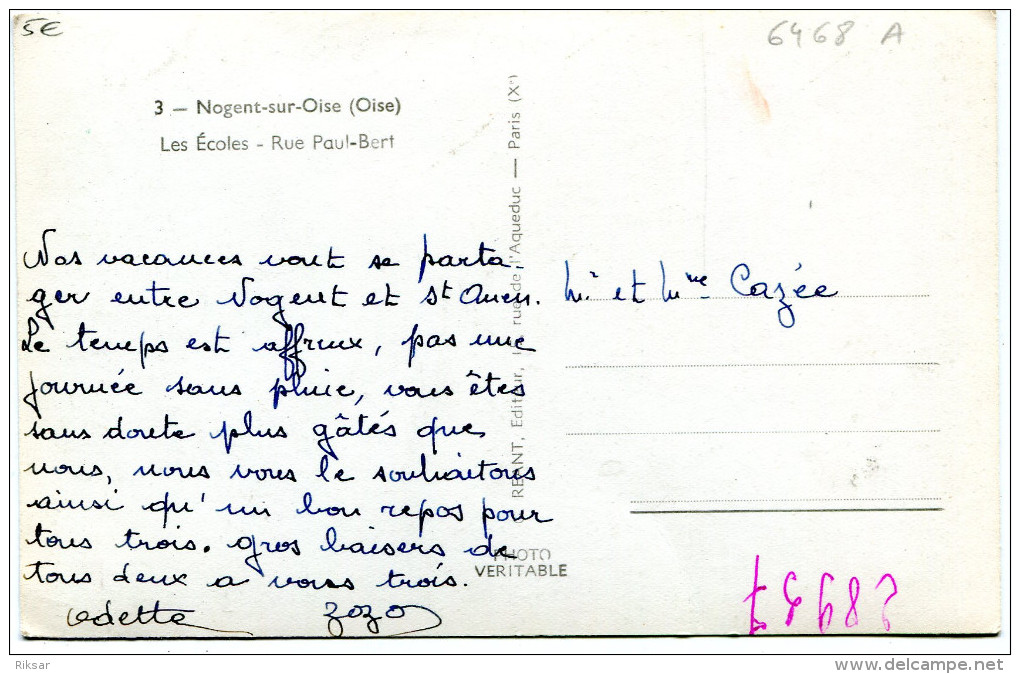 5€
6468 A
3 — Nogent-sur-Oise (Oise)
Les Écoles - Rue Paul-Bert
Nos vacances vont se parta-
ger entre Nogent et St Ouen.
Le temps est affreux, pas une
journée sans pluie, vous êtes
sans doute plus gâtés que
nous, nous vous le souhaitons
ainsi qu'un bon repos pour
tous trois. Gros baisers de
tous deux a vous trois.
Odette Zozo
Editeur, rue de l'Aqueduc — Paris (Xe)
PHOTO
VERITABLE
Mr et Mme Cazée
Riksar
www.delcampe.net